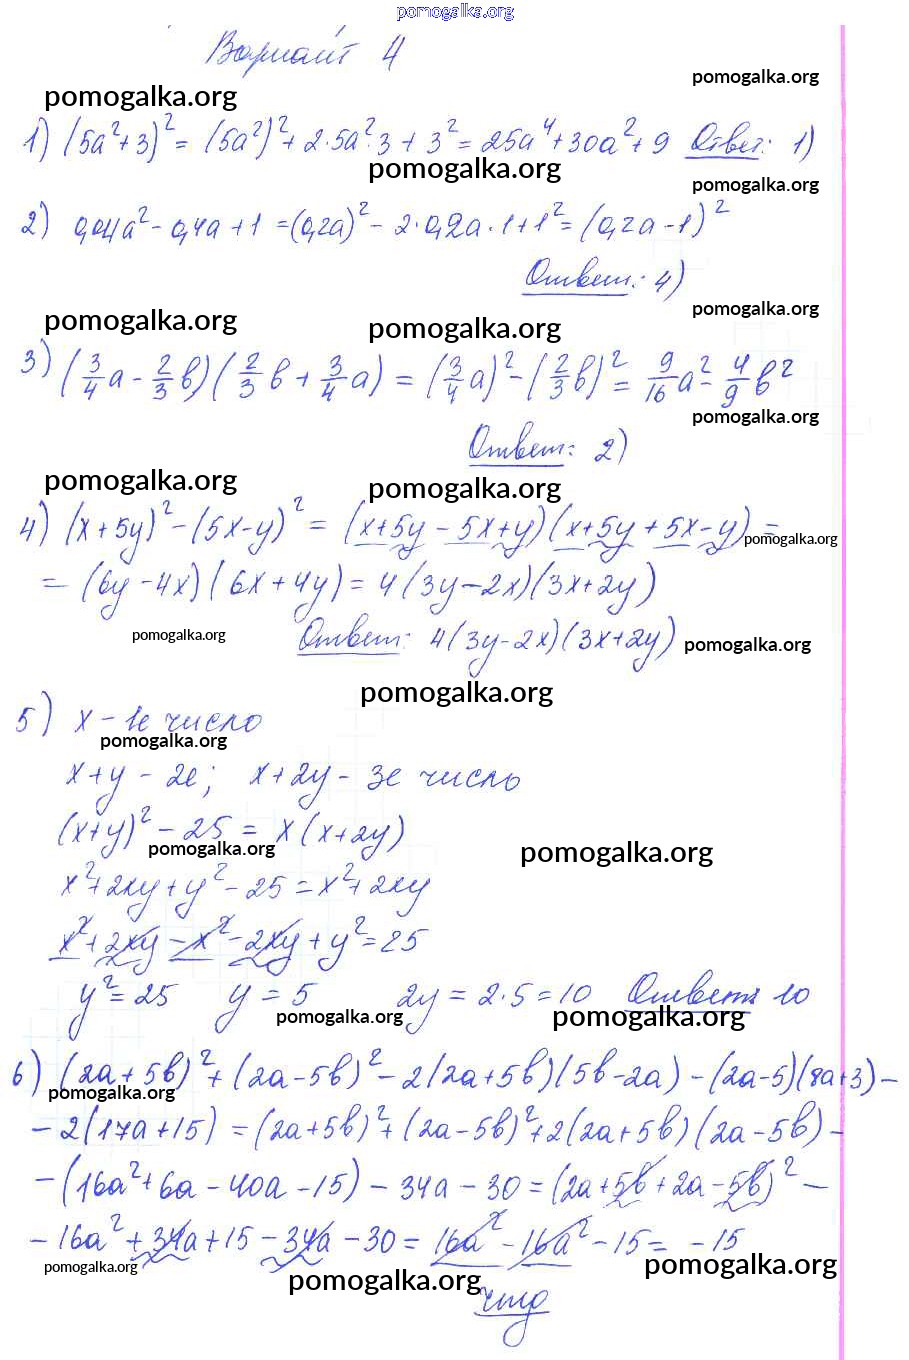 pomogalka.org
Вариант 4
pomogalka.org
pomogalka.org
1) (5a²+3)² = (5a²)²+2·5a²·3+3² = 25a⁴+30a²+9 Ответ: 1)
pomogalka.org
pomogalka.org
2) 0,04a² - 0,4a + 1 = (0,2a)² - 2·0,2a·1+1² = (0,2a-1)²
Ответ: 4)
pomogalka.org
pomogalka.org
pomogalka.org
3) (3/4 a - 2/3 b)(2/3 b + 3/4 a) = (3/4 a)² - (2/3 b)² = 9/16 a² - 4/9 b²
pomogalka.org
Ответ: 2)
pomogalka.org
pomogalka.org
4) (x+5y)² - (5x-y)² = (x+5y-5x+y)(x+5y+5x-y) =
pomogalka.org
= (6y-4x)(6x+4y) = 4(3y-2x)(3x+2y)
pomogalka.org
Ответ: 4(3y-2x)(3x+2y)
pomogalka.org
pomogalka.org
5) x - 1е число
pomogalka.org
x+y - 2е; x+2y - 3е число
(x+y)² - 25 = x(x+2y)
pomogalka.org
pomogalka.org
x²+2xy+y²-25 = x²+2xy
x²+2xy-x²-2xy+y²=25
y²=25 y=5 2y=2·5=10 Ответ: 10
pomogalka.org
pomogalka.org
6) (2a+5b)²+(2a-5b)²-2(2a+5b)(5b-2a)-(2a-5)(8a+3)-
pomogalka.org
-2(17a+15) = (2a+5b)²+(2a-5b)²+2(2a+5b)(2a-5b)-
-(16a²+6a-40a-15)-34a-30 = (2a+5b+2a-5b)²-
-16a²+34a+15-34a-30 = 16a²-16a²-15 = -15
pomogalka.org
pomogalka.org
pomogalka.org
чтд